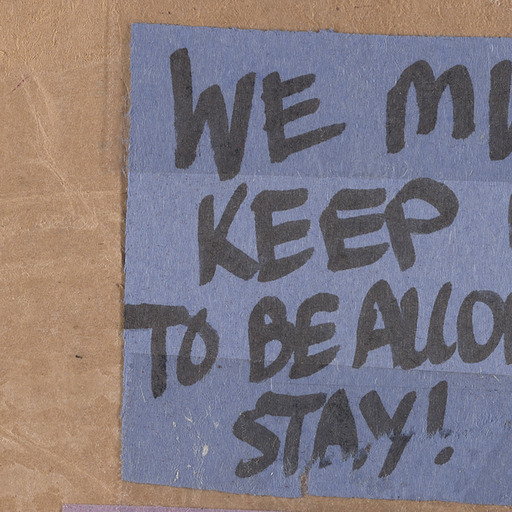 WE MU
KEEP
TO BE ALLO
STAY!